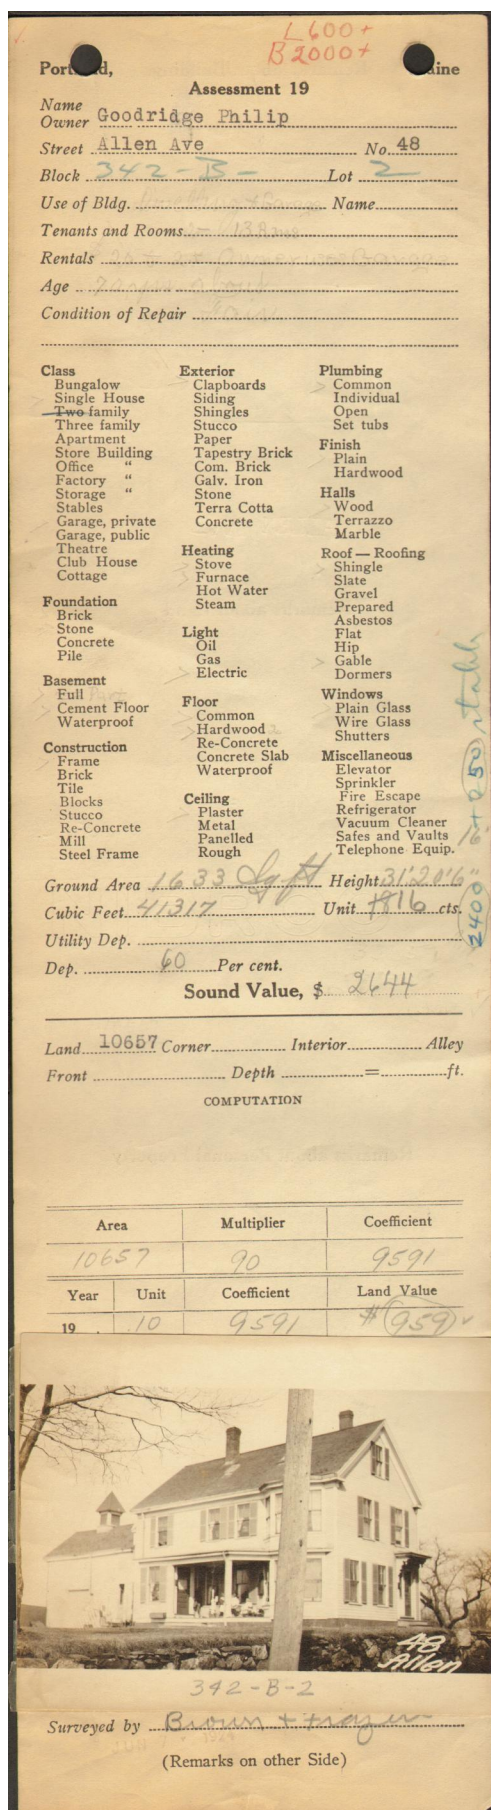 L 600+
B 2000+
Portland, Maine
Assessment 19
Name
Owner Goodridge Philip
Street Allen Ave No. 48
Block 342-B- Lot 2
Use of Bldg. Name
Tenants and Rooms
Rentals
Age
Condition of Repair Fair
Class
Bungalow
Single House
Two family
Three family
Apartment
Store Building
Office "
Factory "
Storage "
Stables
Garage, private
Garage, public
Theatre
Club House
Cottage
Foundation
Brick
Stone
Concrete
Pile
Basement
Full
Cement Floor
Waterproof
Construction
Frame
Brick
Tile
Blocks
Stucco
Re-Concrete
Mill
Steel Frame
Exterior
Clapboards
Siding
Shingles
Stucco
Paper
Tapestry Brick
Com. Brick
Galv. Iron
Stone
Terra Cotta
Concrete
Heating
Stove
Furnace
Hot Water
Steam
Light
Oil
Gas
Electric
Floor
Common
Hardwood 2
Re-Concrete
Concrete Slab
Waterproof
Ceiling
Plaster
Metal
Panelled
Rough
Plumbing
Common
Individual
Open
Set tubs
Finish
Plain
Hardwood
Halls
Wood
Terrazzo
Marble
Roof — Roofing
Shingle
Slate
Gravel
Prepared
Asbestos
Flat
Hip
Gable
Dormers
Windows
Plain Glass
Wire Glass
Shutters
Miscellaneous
Elevator
Sprinkler
Fire Escape
Refrigerator
Vacuum Cleaner
Safes and Vaults
Telephone Equip.
2400 50 stable
Ground Area 1633 Sq ft Height 31' 20' 6" 16'
Cubic Feet 41317 Unit 16 cts.
Utility Dep.
Dep. 60 Per cent.
Sound Value, $ 2644
Land 10657 Corner Interior Alley
Front Depth = ft.
COMPUTATION
Area Multiplier Coefficient
10657 90 9591
Year Unit Coefficient Land Value
19 .10 9591 $ 959
48
Allen
342-B-2
Surveyed by Brown + Frazer
(Remarks on other Side)